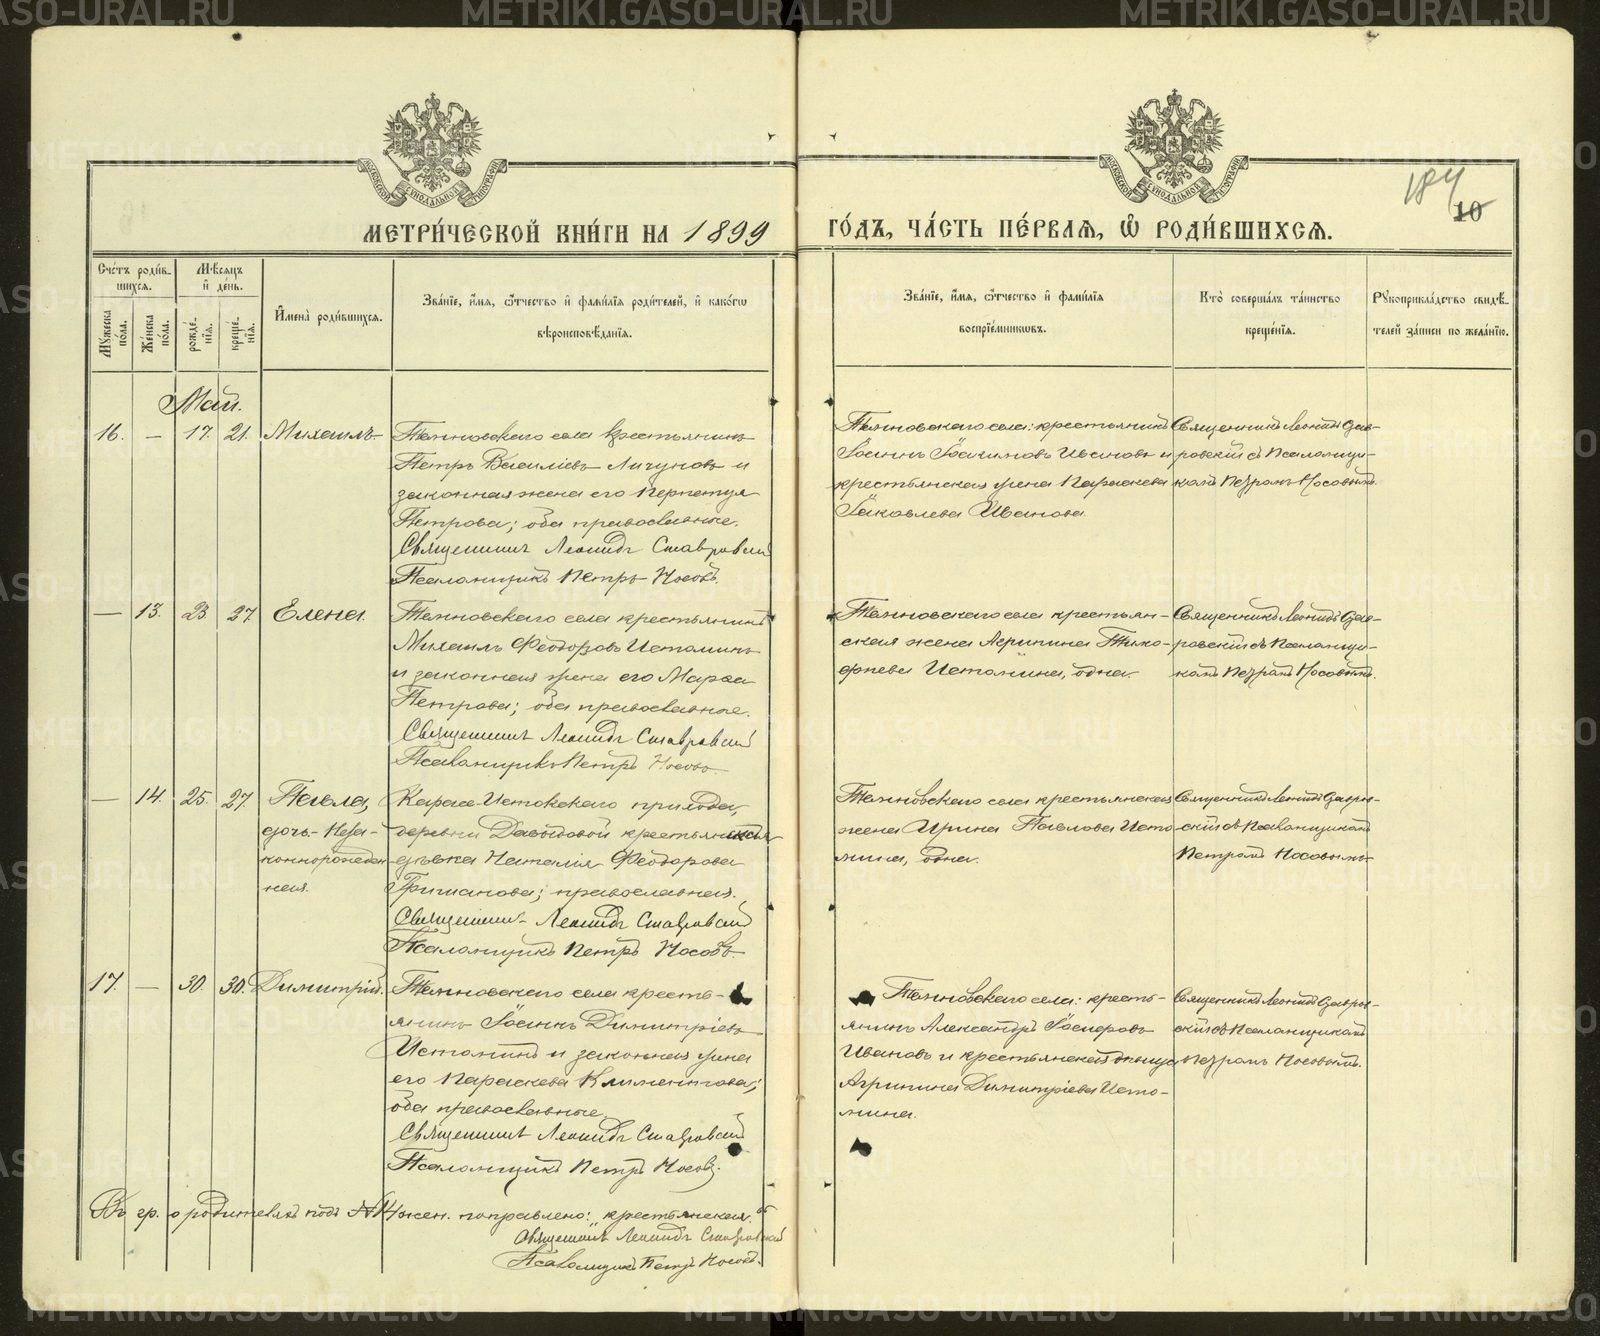 METRIKI.GASO-URAL.RU
184
10
МЕТРИ́ЧЕСКОЙ КНИ́ГИ НА 1899 ГО́ДЪ, ЧА́СТЬ ПЕ́РВАЯ, Ѡ҆ РОДИ́ВШИХСЯ.
Сче́тъ роди́в-
шихся.
Му́жеска по́ла.
Же́нска по́ла.
Мѣ́сяцъ
и҆ де́нь.
рожде́нїя.
креще́нїя.
И҆мена̀ роди́вшихся.
Зва́нїе, и҆́мя, ѻ҆́тчество и҆ фами́лїя роди́телей, и҆ како́гѡ
вѣроисповѣ́данїя.
Зва́нїе, и҆́мя, ѻ҆́тчество и҆ фами́лїя
воспрїе́мниковъ.
Кто̀ соверша́лъ та́инство
креще́нїя.
Рукоприкла́дство свидѣ́-
телей за́писи по жела́нїю.
Май.
16. — 17. 21. Михаилъ
Темновскаго села крестьянинъ
Петръ Василіевъ Личуновъ и
законная жена его Перпетуя
Петрова; оба православные.
Священникъ Леонидъ Ставровскій
Псаломщикъ Петръ Носовъ.
Темновскаго села: крестьянинъ
Іоаннъ Іоакимовъ Ивановъ и
крестьянская жена Параскева
Іаковлева Иванова
Священникъ Леонидъ Став-
ровскій съ Псаломщи-
комъ Петромъ Носовымъ.
— 13. 23. 27. Елена.
Темновскаго села крестьянинъ
Михаилъ Феодоровъ Истоминъ
и законная жена его Марѳа
Петрова; оба православные.
Священникъ Леонидъ Ставровскій
Псаломщикъ Петръ Носовъ.
Темновскаго села крестьян-
ская жена Агрипина
Истомина, одна.
Священникъ Леонидъ Став-
ровскій съ Псаломщи-
комъ Петромъ Носовымъ.
— 14. 25. 27. Павла,
дочь незаконнорожденная.
Истокскаго прихода,
деревни Давыдовой крестьянская
дѣвка Наталія Феодорова
православная.
Священникъ Леонидъ Ставровскій
Псаломщикъ Петръ Носовъ.
Темновскаго села крестьянская
жена Ирина Павлова Исто-
мина, одна.
Священникъ Леонидъ Ставров-
скій съ Псаломщикомъ
Петромъ Носовымъ.
17. — 30. 30. Димитрій.
Темновскаго села кресть-
янинъ Іоаннъ Димитріевъ
Истоминъ и законная жена
его Параскева Климентова;
оба православные.
Священникъ Леонидъ Ставровскій
Псаломщикъ Петръ Носовъ.
Темновскаго села: кресть-
янинъ Александръ
Ивановъ и крестьянская дѣвица
Агрипина Димитріева Исто-
мина.
Священникъ Леонидъ Ставров-
скій съ Псаломщикомъ
Петромъ Носовымъ.
Въ гр. о родителяхъ подъ №14 жен. поправлено: „крестьянская".
Священникъ Леонидъ Ставровскій
Псаломщикъ Петръ Носовъ.